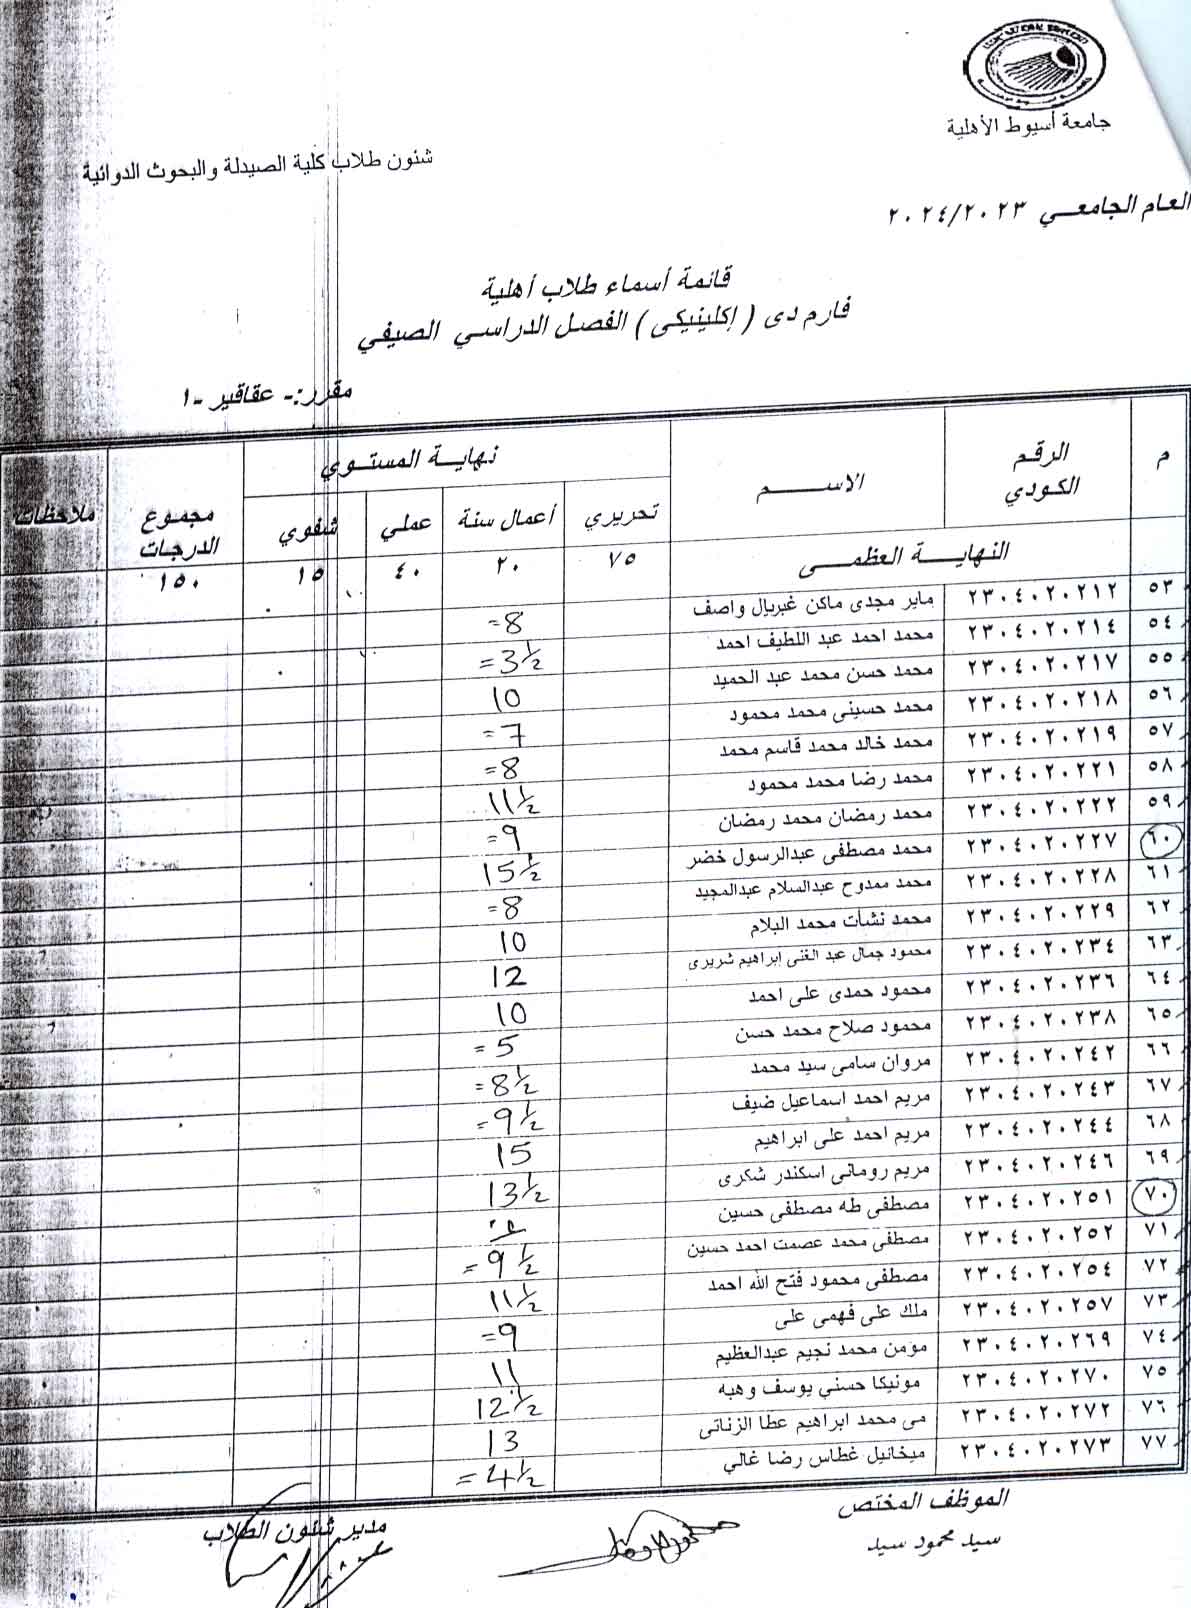 جامعة أسيوط الأهلية
شئون طلاب كلية الصيدلة والبحوث الدوائية
العام الجامعي ٢٠٢٤/٢٠٢٣
قائمة أسماء طلاب أهلية
فارم دى ( إكلينيكى ) الفصل الدراسي الصيفي
مقرر:- عقاقير -١
م الرقم الكودي الاســـم نهاية المستوي مجموع الدرجات ملاحظات
تحريري أعمال سنة عملي شفوي
النهاية العظمى ٧٥ ٢٠ ٤٠ ١٥ ١٥٠
٥٣ ٢٣٠٤٠٢٠٢١٢ ماير مجدى ماكن غبريال واصف 8=
٥٤ ٢٣٠٤٠٢٠٢١٤ محمد احمد عبد اللطيف احمد 3½=
٥٥ ٢٣٠٤٠٢٠٢١٧ محمد حسن محمد عبد الحميد 10
٥٦ ٢٣٠٤٠٢٠٢١٨ محمد حسينى محمد محمود 7=
٥٧ ٢٣٠٤٠٢٠٢١٩ محمد خالد محمد قاسم محمد 8=
٥٨ ٢٣٠٤٠٢٠٢٢١ محمد رضا محمد محمود 11½
٥٩ ٢٣٠٤٠٢٠٢٢٢ محمد رمضان محمد رمضان 9=
٦٠ ٢٣٠٤٠٢٠٢٢٧ محمد مصطفى عبدالرسول خضر 15½
٦١ ٢٣٠٤٠٢٠٢٢٨ محمد ممدوح عبدالسلام عبدالمجيد 8=
٦٢ ٢٣٠٤٠٢٠٢٢٩ محمد نشأت محمد البلام 10
٦٣ ٢٣٠٤٠٢٠٢٣٤ محمود جمال عبد الغنى ابراهيم شريرى 12
٦٤ ٢٣٠٤٠٢٠٢٣٦ محمود حمدى على احمد 10
٦٥ ٢٣٠٤٠٢٠٢٣٨ محمود صلاح محمد حسن 5=
٦٦ ٢٣٠٤٠٢٠٢٤٢ مروان سامى سيد محمد 8½=
٦٧ ٢٣٠٤٠٢٠٢٤٣ مريم احمد اسماعيل ضيف 9½=
٦٨ ٢٣٠٤٠٢٠٢٤٤ مريم احمد على ابراهيم 15
٦٩ ٢٣٠٤٠٢٠٢٤٦ مريم رومانى اسكندر شكرى 13½
٧٠ ٢٣٠٤٠٢٠٢٥١ مصطفى طه مصطفى حسين
٧١ ٢٣٠٤٠٢٠٢٥٢ مصطفى محمد عصمت احمد حسين 9½=
٧٢ ٢٣٠٤٠٢٠٢٥٤ مصطفى محمود فتح الله احمد 11½
٧٣ ٢٣٠٤٠٢٠٢٥٧ ملك على فهمى على 9=
٧٤ ٢٣٠٤٠٢٠٢٦٩ مؤمن محمد نجيم عبدالعظيم 11
٧٥ ٢٣٠٤٠٢٠٢٧٠ مونيكا حسني يوسف وهبه 12½
٧٦ ٢٣٠٤٠٢٠٢٧٢ مى محمد ابراهيم عطا الزناتى 13
٧٧ ٢٣٠٤٠٢٠٢٧٣ ميخائيل غطاس رضا غالي 4½=
الموظف المختص مدير شئون الطلاب
سيد محمود سيد